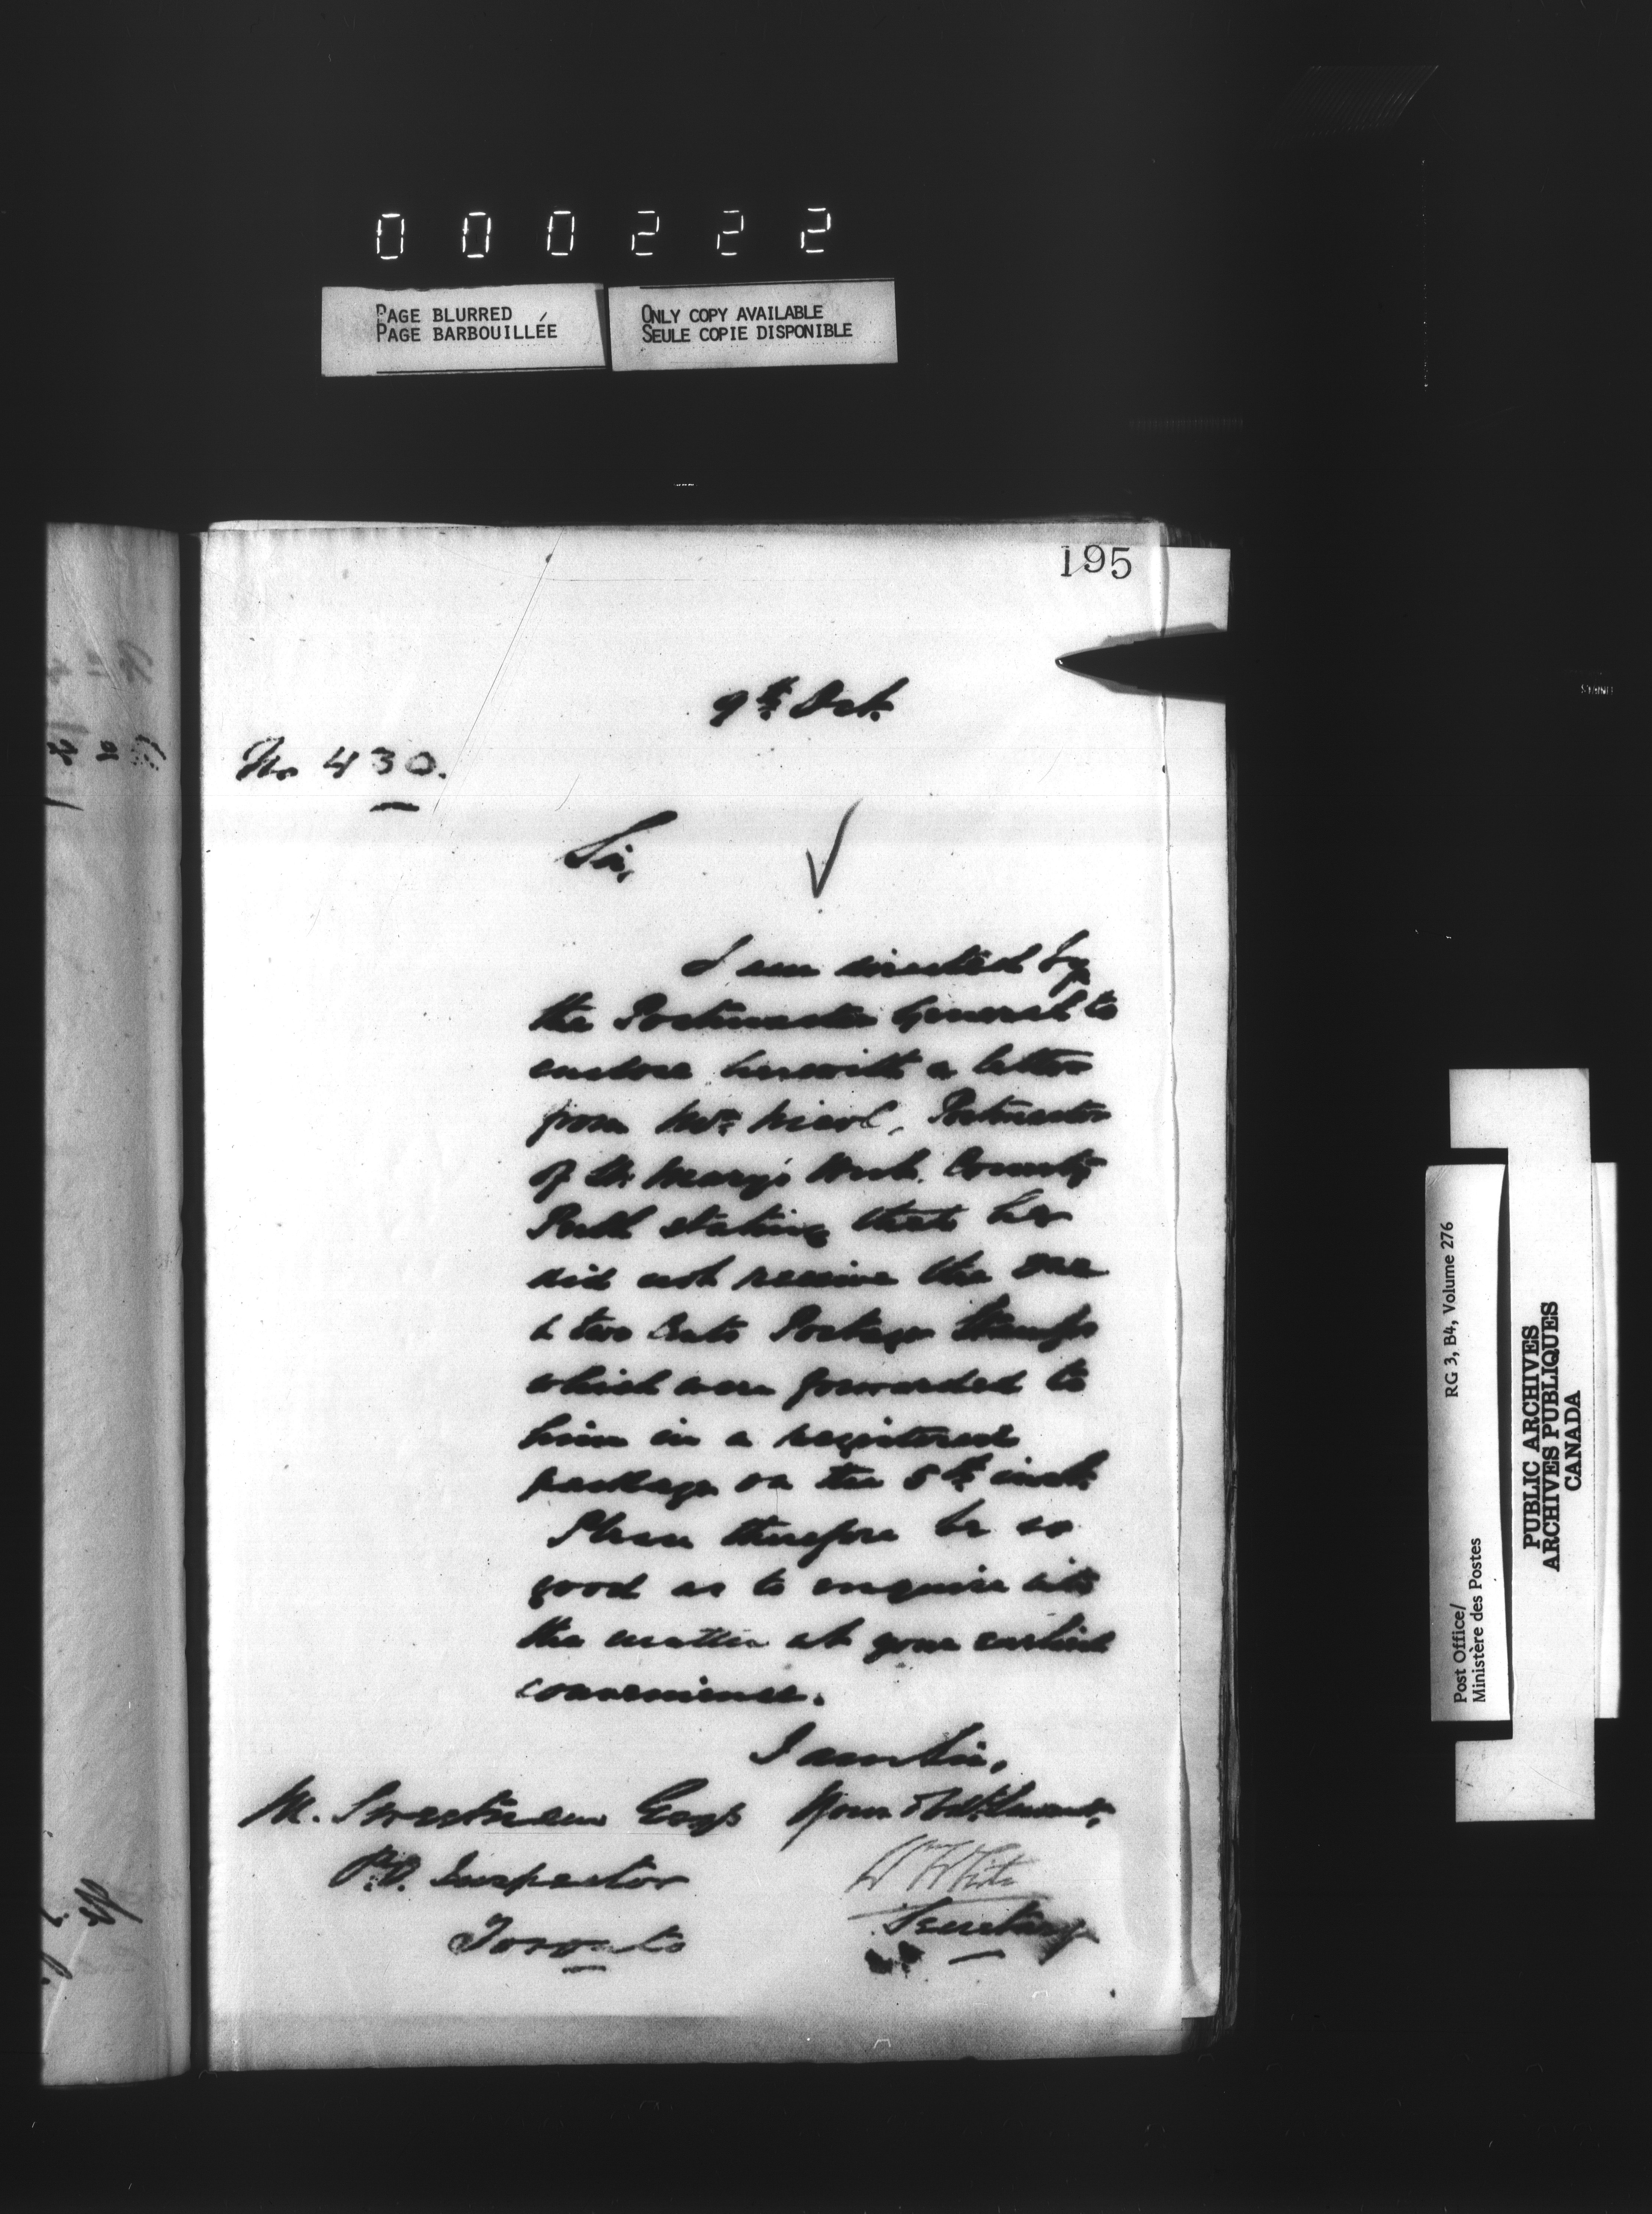 000222
PAGE BLURRED
PAGE BARBOUILLÉE
ONLY COPY AVAILABLE
SEULE COPIE DISPONIBLE
195
9th Oct.
No 430.
Sir,
I am directed by
the Postmaster General to
enclose herewith a letter
from Mr. Nicol, Postmaster
of St. Mary's West. County
Perth stating that he
did not receive the one
& two Cents Postage Stamps
which were forwarded to
him in a registered
package on the 5th inst.
Please therefore be so
good as to enquire into
the matter at your earliest
convenience.
I am Sir,
Your Obdt. Servant,
M. Sweetnam Esqr
P.O. Inspector
Toronto
W White
Secretary
RG 3, B4, Volume 276
Post Office/
Ministère des Postes
PUBLIC ARCHIVES
ARCHIVES PUBLIQUES
CANADA